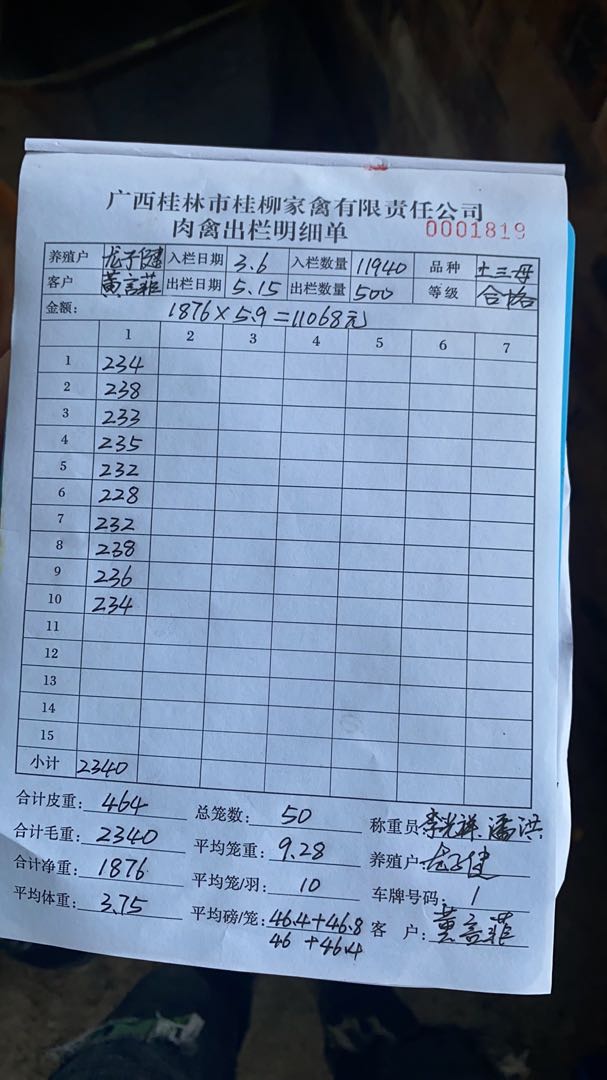 广西桂林市桂柳家禽有限责任公司
肉禽出栏明细单 0001819
养殖户 龙子健 入栏日期 3.6 入栏数量 11940 品种 土三母
客户 黄言菲 出栏日期 5.15 出栏数量 500 等级 合格
金额: 1876×5.9=11068元
1 2 3 4 5 6 7
1 234
2 238
3 233
4 235
5 232
6 228
7 232
8 238
9 236
10 234
11
12
13
14
15
小计 2340
合计皮重: 464 总笼数: 50 称重员 李光祥 潘洪
合计毛重: 2340 平均笼重: 9.28 养殖户 龙子健
合计净重: 1876 平均笼/羽: 10 车牌号码: 1
平均体重: 3.75 平均磅/笼: 46.4+46.8 客 户: 黄言菲
46 +46.4